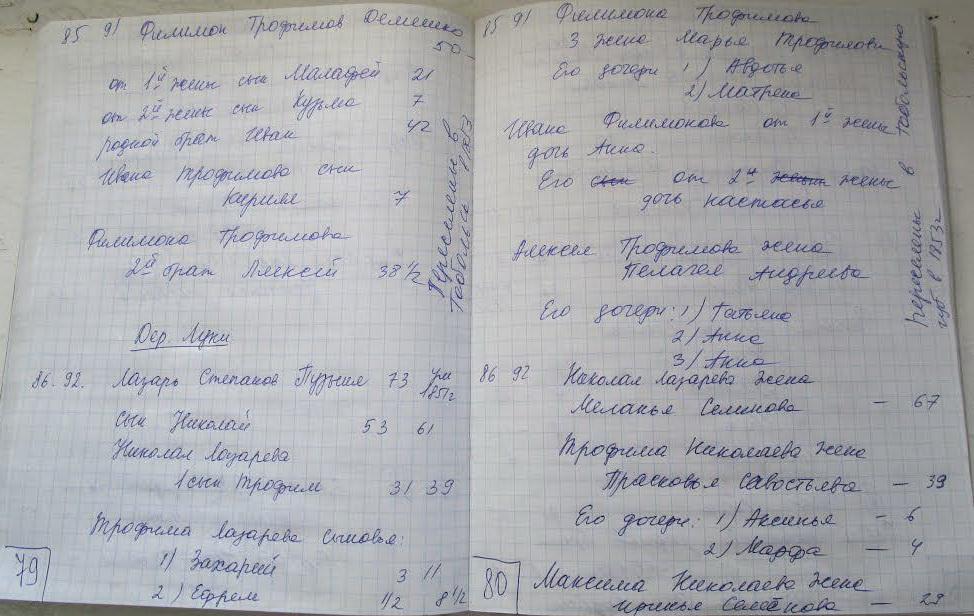 85 91 Филимон Трофимов Деменько
50
от 1й жены сын Малафей 21
от 2й жены сын Кузьма 7
родной брат Иван 42
Ивана Трофимова сын
Кирила 7
Филимона Трофимова
2й брат Алексей 38 1/2
Переселены в
Тобольск 1853
Дер. Луки
86. 92. Лазарь Степанов Пузыня 73 ум 1851г
сын Николай 53 61
Николая Лазарева
1 сын Трофим 31 39
Трофима Лазарева сыновья:
1) Захарий 3 11
2) Ефрем 1/2 8 1/2
79
85 91 Филимона Трофимова
3 жена Марья Трофимова
Его дочери 1) Авдотья
2) Матрена
Ивана Филимонова от 1й жены
дочь Анна.
Его сын от 2й жены жены
дочь Настасья
Алексея Трофимова жена
Пелагея Андреева
Его дочери: 1) Татьяна
2) Анна
3) Анна
переселены в Тобольскую
губ в 1853г
86 92 Николая Лазарева жена
Меланья Семенова – 67
Трофима Николаева жена
Прасковья Савостьева – 39
Его дочери: 1) Аксинья – 6
2) Марфа – 4
80
Максима Николаева жена
Семенова – 29